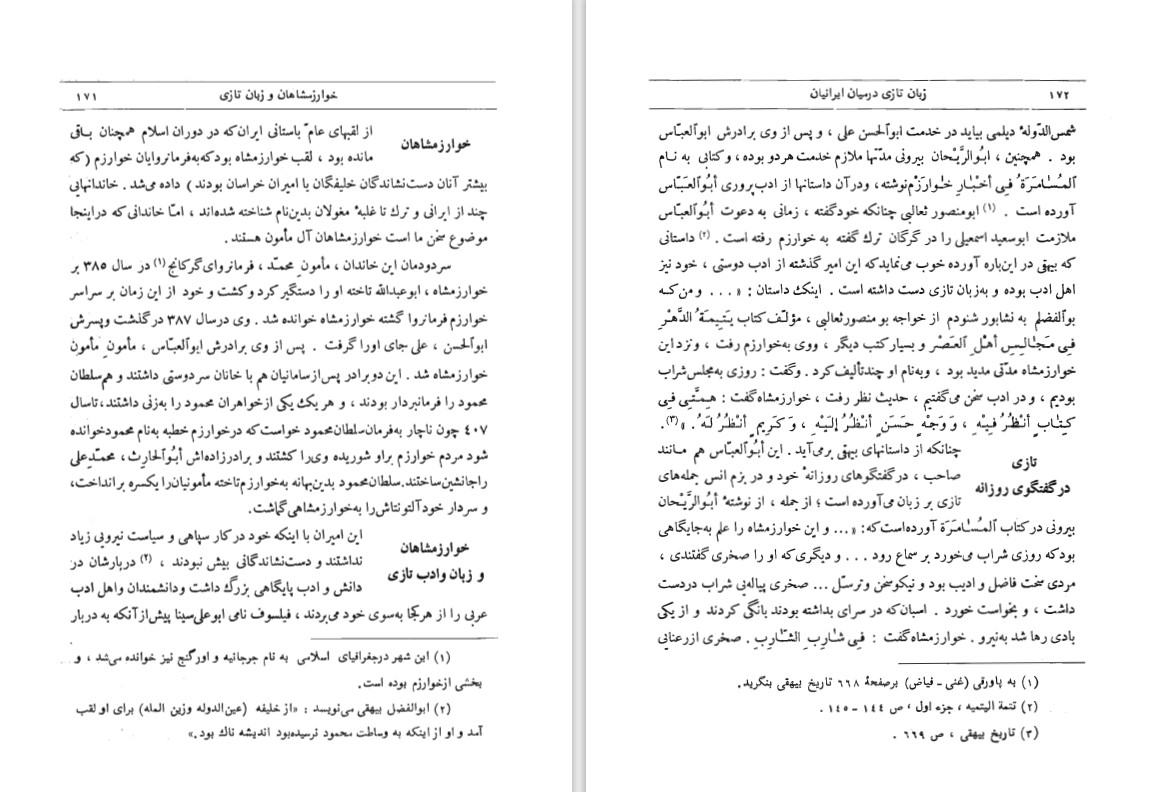 خوارزمشاهان و زبان تازی ۱۷۱
خوارزمشاهان
از لقبهای عامّ باستانی ایران‌که در دوران اسلام همچنان باقی
مانده بود ، لقب خوارزمشاه بودکه‌به‌فرمانروایان خوارزم (که
بیشتر آنان دست‌نشاندگان خلیفگان یا امیران خراسان بودند) داده می‌شد . خاندانهایی
چند از ایرانی و ترك تا غلبهٔ مغولان بدین‌نام شناخته شده‌اند ، امّا خاندانی که دراینجا
موضوع سخن ما است خوارزمشاهان آل مأمون هستند .
سردودمان این خاندان ، مأمون محمّد ، فرمانروای گرکانج(۱) در سال ۳۸۵ بر
خوارزمشاه ، ابوعبدالله تاخته او را دستگیر کرد وکشت و خود از این زمان بر سراسر
خوارزم فرمانروا گشته خوارزمشاه خوانده شد . وی درسال ۳۸۷ درگذشت وپسرش
ابوالحسن ، علی جای اورا گرفت . پس از وی برادرش ابوالعبّاس ، مأمونِ مأمون
خوارزمشاه شد . این دوبرادر پس‌ازسامانیان هم با خانان سردوستی داشتند و هم‌سلطان
محمود را فرمانبردار بودند ، و هریك یکی ازخواهران محمود را به‌زنی داشتند، تاسال
۴۰۷ چون ناچار به‌فرمان‌سلطان‌محمود خواست‌که درخوارزم خطبه به‌نام محمودخوانده
شود مردم خوارزم براو شوریده وی‌را کشتند و برادرزاده‌اش أبوالحارث ، محمّدعلی
راجانشین‌ساختند.سلطان‌محمود بدین‌بهانه به‌خوارزم‌تاخته مأمونیان‌را یکسره برانداخت،
و سردار خود آلتونتاش‌را به‌خوارزمشاهی‌گماشت.
خوارزمشاهان
و زبان وادب تازی
این امیران با اینکه خود درکار سپاهی و سیاست نیرویی زیاد
نداشتند و دست‌نشاندگانی بیش نبودند ، (۲) دربارشان در
دانش و ادب پایگاهی بزرگ داشت و دانشمندان واهل ادب
عربی را از هرکجا به‌سوی خود می‌بردند ، فیلسوف نامی ابوعلی‌سینا پیش‌ازآنکه به دربار
(۱) این شهر درجغرافیای اسلامی به نام جرجانیه و اورگنج نیز خوانده می‌شد ، و
بخشی ازخوارزم بوده است.
(۲) ابوالفضل بیهقی می‌نویسد : «از خلیفه (عین‌الدوله وزین المله) برای او لقب
آمد و او از اینکه به وساطت محمود نرسیده‌بود اندیشه ناك بود .»
زبان تازی درمیان ایرانیان ۱۷۲
شمس‌الدّولهٔ دیلمی بیاید در خدمت ابوالحسن علی ، و پس از وی برادرش ابوالعبّاس
بود . همچنین ، ابوالرّیحان بیرونی مدّتها ملازم خدمت هردو بوده ، وکتابی به نام
المُسامَرَةُ فی أخبارِ خوارَزْم‌نوشته، ودرآن داستانها از ادب‌پروری أبوالعبّاس
آورده است . (۱) ابومنصور ثعالبی چنانکه خودگفته ، زمانی به دعوت أبوالعبّاس
ملازمت ابوسعید اسمعیلی را در گرگان ترك گفته به خوارزم رفته است . (۲) داستانی
که بیهقی در این‌باره آورده خوب می‌نمایدکه این امیر گذشته از ادب دوستی ، خود نیز
اهل ادب بوده و به‌زبان تازی دست داشته است . اینك داستان : «. . . و من‌کـه
بوالفضلم به نشابور شنودم از خواجه بو منصورثعالبی ، مؤلّف کتاب یَتیمَةُ الدَّهْرِ
فی مَجالِسِ أهْلِ العَصْرِ و بسیار کتب دیگر ، ووی به‌خوارزم رفت ، ونزد این
خوارزمشاه مدّتی مدید بود ، وبه‌نام او چندتألیف‌کرد . وگفت : روزی به‌مجلس‌شراب
بودیم ، و در ادب سخن می‌گفتیم ، حدیث نظر رفت ، خوارزمشاه‌گفت : هِمَّتی فی
کِتابٍ أنْظُرُ فیهِ ، وَوَجْهٍ حَسَنٍ أنْظُرُ إلَیْهِ ، وَ کَریمٍ أنْظُرُ لَهُ . »(۳).
تازی
درگفتگوی روزانه
چنانکه از داستانهای بیهقی برمی‌آید . این أبوالعبّاس هم مـانند
صاحب ، درگفتگوهای روزانهٔ خود و در بزم انس جمله‌های
تازی بر زبان می‌آورده است ؛ از جمله ، از نوشتهٔ أبوالرَّیْحان
بیرونی درکتاب المُسامَرَة آورده‌است‌که: «... و این خوارزمشاه را علم به‌جایگاهی
بودکه روزی شراب می‌خورد بر سماع رود . . . و دیگری‌که او را صخری گفتندی ،
مردی سخت فاضل و ادیب بود و نیکوسخن وترسّل ... صخری پیاله‌یی شراب دردست
داشت ، و بخواست خورد . اسبان‌که در سرای بداشته بودند بانگی کردند و از یکی
بادی رها شد به‌نیرو . خوارزمشاه‌گفت : فِی شارِبِ الشّارِبِ . صخری ازرعنایی
(۱) به پاورقی (غنی ـ فیاض) برصفحهٔ ۶۶۸ تاریخ بیهقی بنگرید.
(۲) تتمة الیتمیه ، جزء اول ، ص ۱۴۴ - ۱۴۵ .
(۳) تاریخ بیهقی ، ص ۶۶۹ .